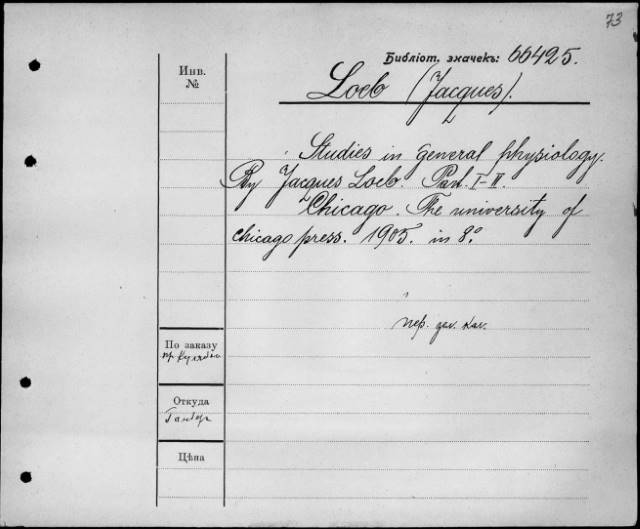 73
Библіот. значекъ: 66425.
Инв.
№
Loeb (Jacques).
Studies in general physiology.
By Jacques Loeb. Part. I-II.
Chicago. The university of
chicago press. 1905. in 8º.
По заказу
Откуда
Цѣна